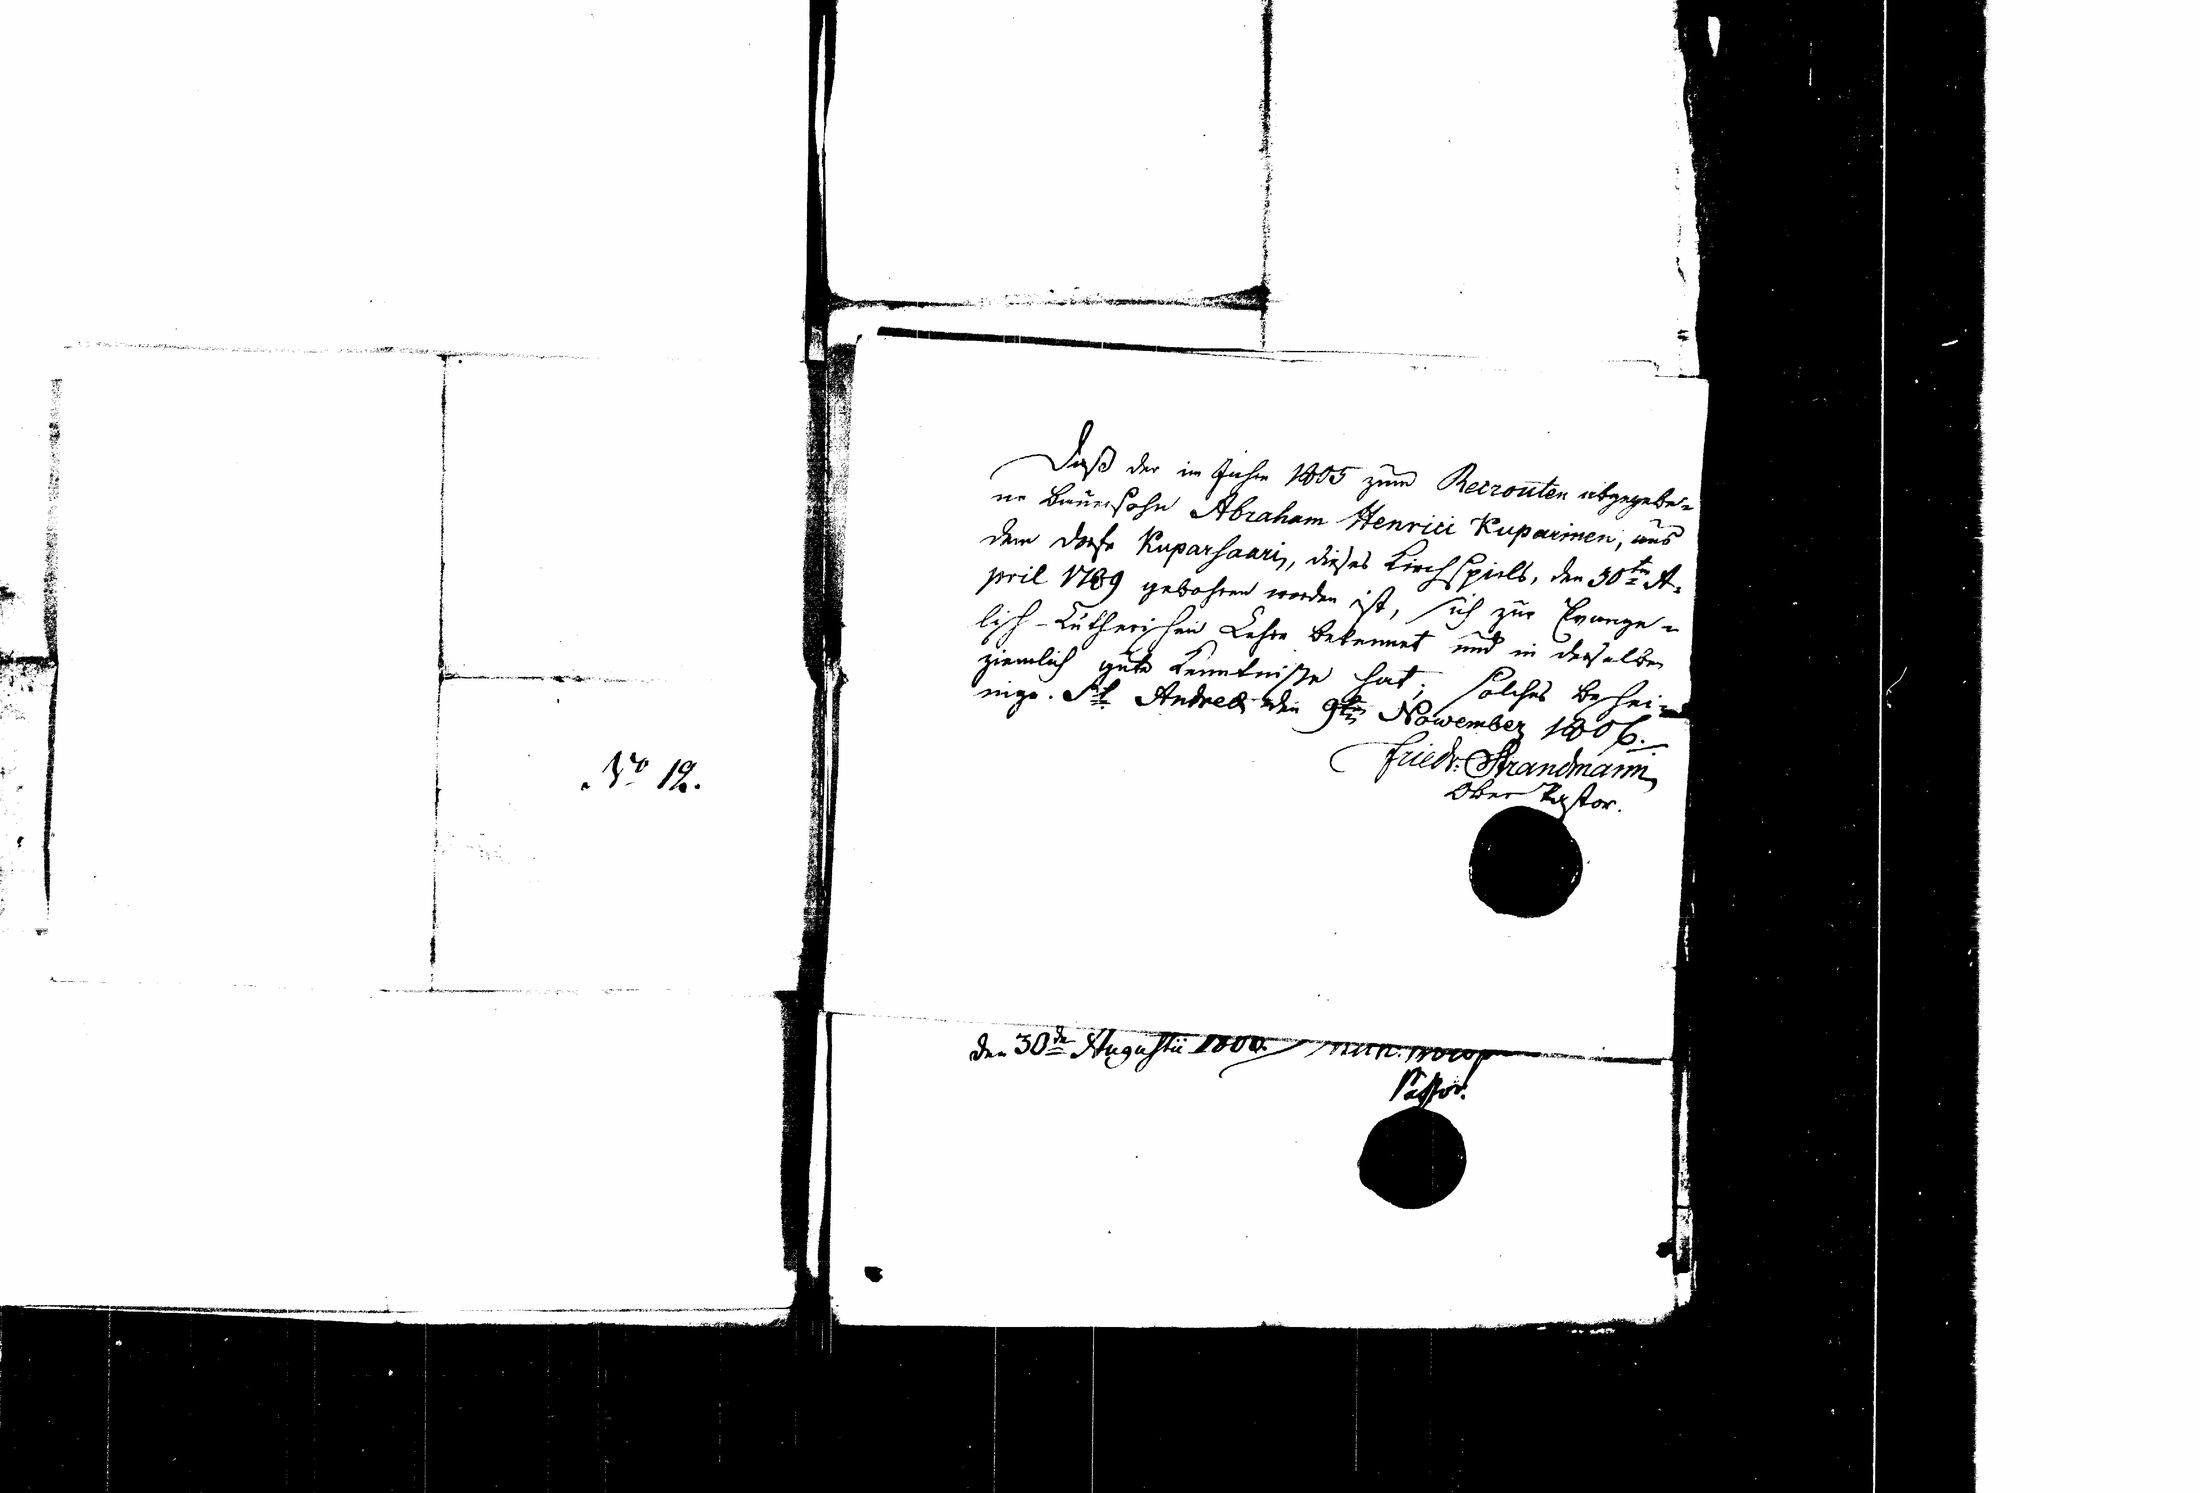 No 12.
Daß der im Jahre 1805 zum Recrouten abgegebe-
ne Bauersohn Abraham Henrici Kuparinen, aus
dem Dorfe Kuparsaari, dieses Kirchspiels, den 30ten A-
pril 1789 gebohren worden ist, sich zur Evange-
lisch-Lutherischen Lehre bekennet und in derselben
ziemlich gute Kenntniße hat; solches beschei-
nige. St. Andreæ den 9ten November 1806.
Friedr. Strandmann
Ober Pastor.
den 30ten Augustii 1806.
Pastor.